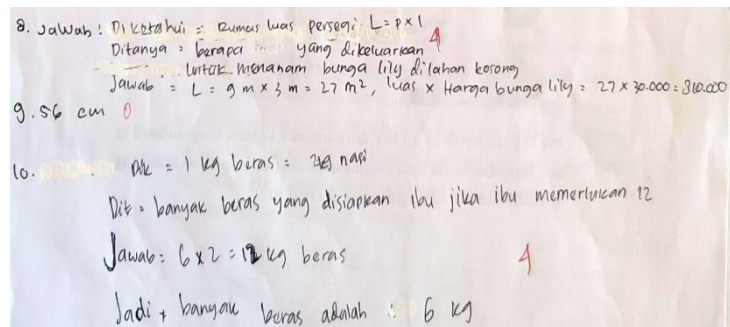 8. Jawab : Diketahui = Rumus luas persegi L = p x l
Ditanya = berapa yang dikeluarkan 4
untuk menanam bunga lily dilahan kosong
Jawab = L = 9 m x 3 m = 27 m², luas x Harga bunga lily = 27 x 30.000 = 810.000
9. 56 cm 0
10. Dik = 1 kg beras = 2kg nasi
Dit = banyak beras yang disiapkan ibu jika ibu memerlukan 12
Jawab = 6 x 2 = 12 kg beras 4
Jadi, banyak beras adalah : 6 kg